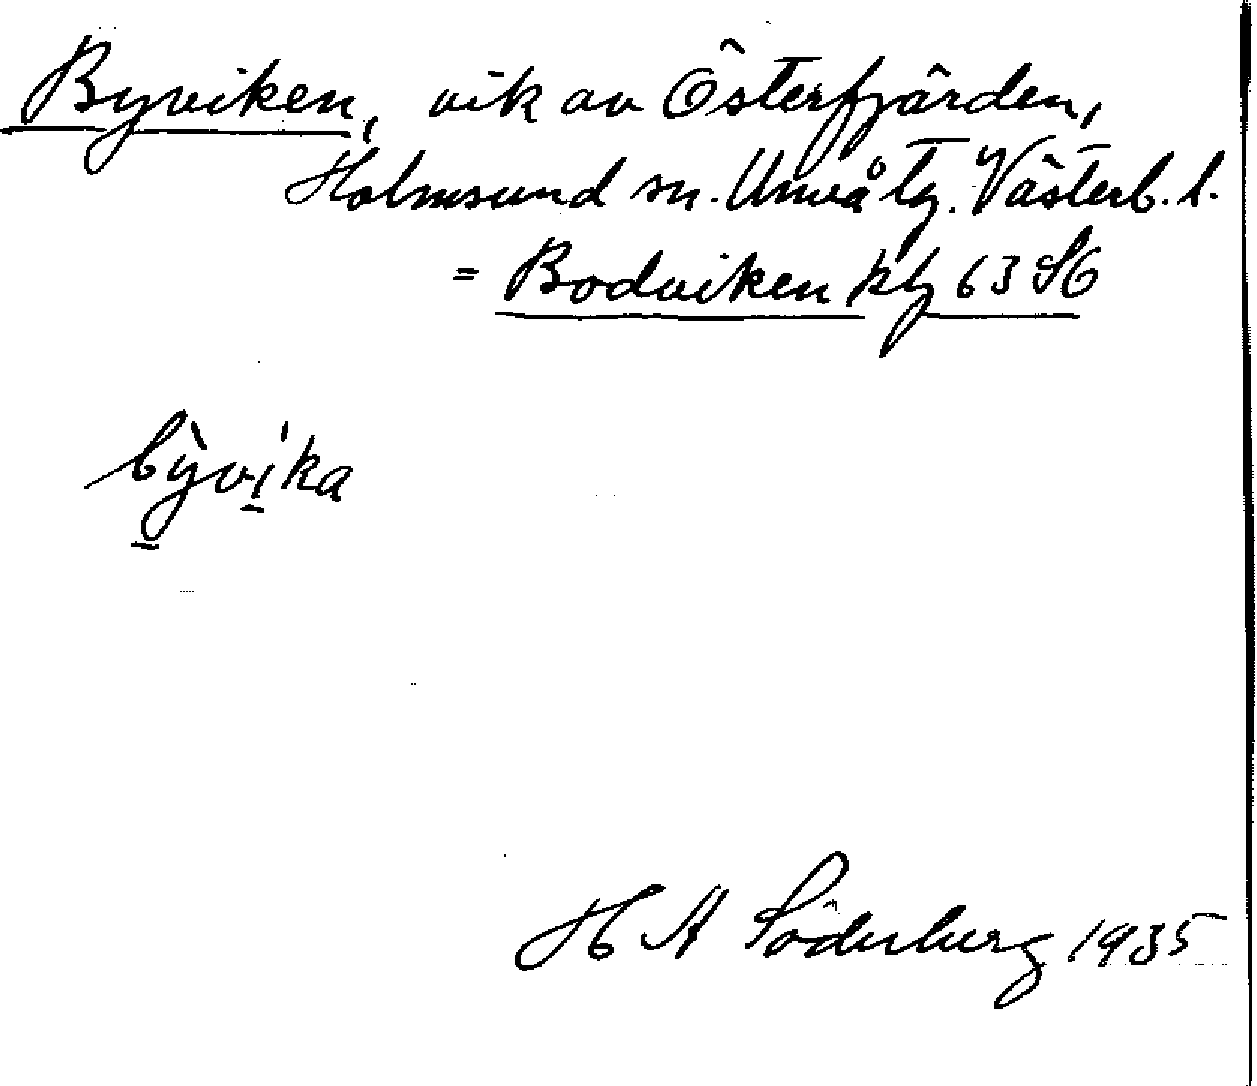 Byviken, vik av Österfjärden,
Holmsund sn. Umeå tg. Västerb. l.
= Bodviken kbl 63 SO
bỳ̠ví̠ka
H A Söderberg 1935